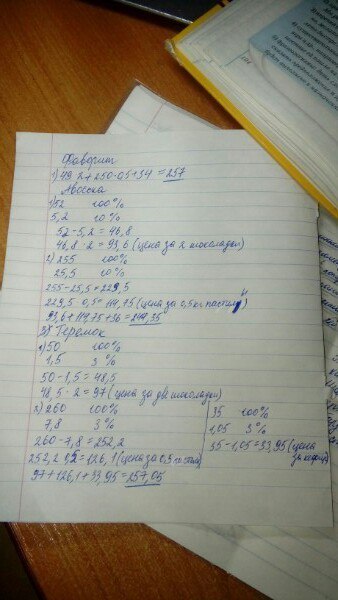 Фаворит
1) 49·2+250·0,5+34 = 257
Авоська
1) 52 100%
5,2 10%
52-5,2 = 46,8
46,8·2 = 93,6 (цена за 2 шоколадки)
2) 255 100%
25,5 10%
255-25,5 = 229,5
229,5·0,5 = 114,75 (цена за 0,5кг пастилы)
93,6+114,75+36 = 244,35
Теремок
1) 50 100%
1,5 3%
50-1,5 = 48,5
48,5·2 = 97 (цена за две шоколадки)
2) 260 100%
7,8 3%
260-7,8 = 252,2
252,2·0,5 = 126,1 (цена за 0,5 кг
97+126,1+33,95 = 257,05
35 100%
1,05 3%
35-1,05 = 33,95 (цена
за кефир)